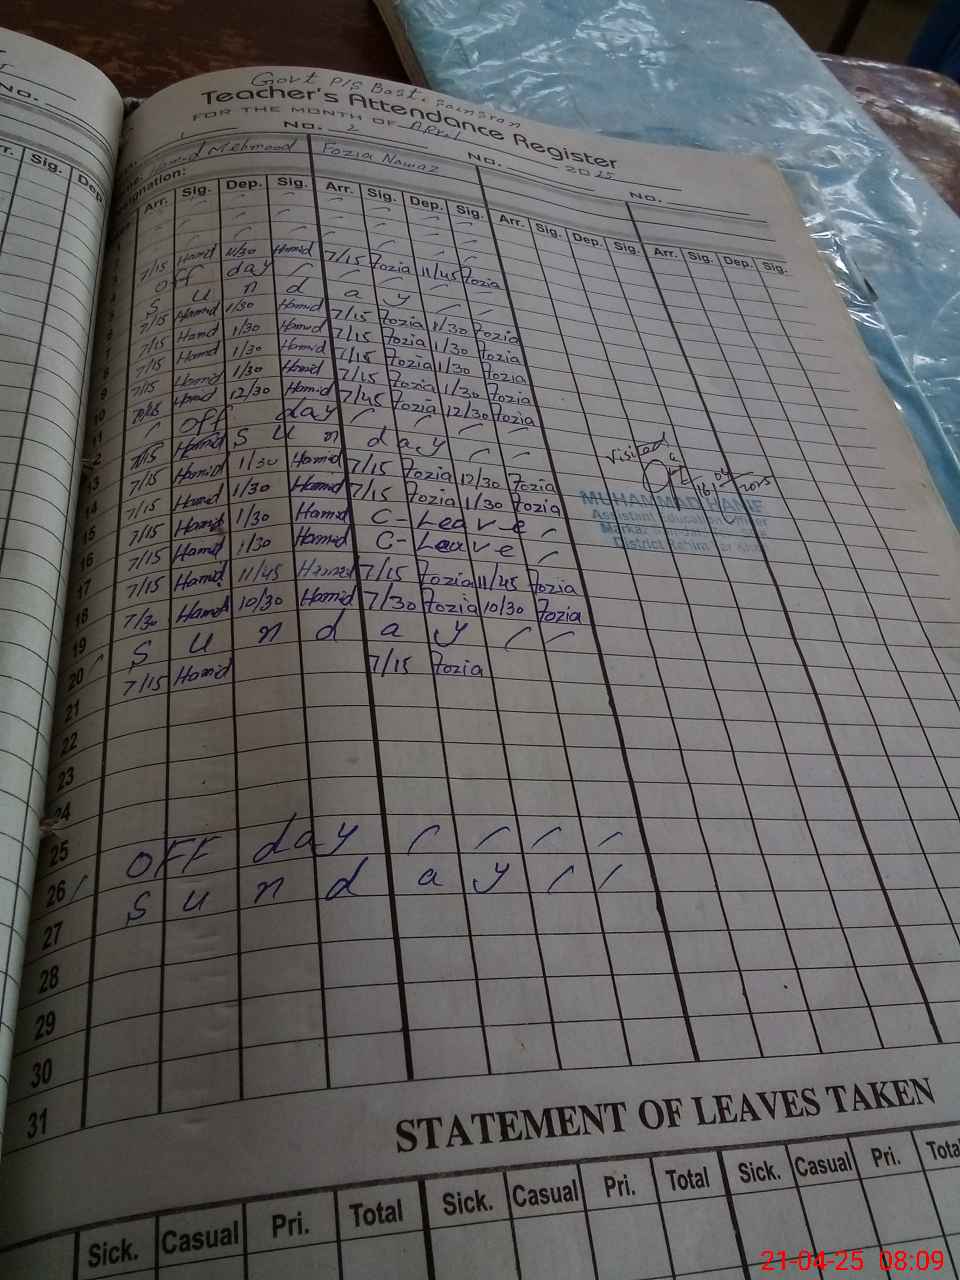 Govt P/S Basti
Teacher's Attendance Register
FOR THE MONTH OF April 2025
NO. 1 NO. 2 NO. NO.
Hamid Mehmood Fozia Nawaz
Designation:
Arr. Sig. Dep. Sig. Arr. Sig. Dep. Sig. Arr. Sig. Dep. Sig. Arr. Sig. Dep. Sig.
7/15 Hamid 11/30 Hamid 7/15 Fozia 11/45 Fozia
off day
S u n d a y
7/15 Hamid 1/30 Hamid 7/15 Fozia 1/30 Fozia
7/15 Hamid 1/30 Hamid 7/15 Fozia 1/30 Fozia
7/15 Hamid 1/30 Hamid 7/15 Fozia 1/30 Fozia
7/15 Hamid 1/30 Hamid 7/15 Fozia 1/30 Fozia
Hamid 12/30 Hamid 7/45 Fozia 12/30 Fozia
off day
S u n d a y
7/15 Hamid
7/15 Hamid 1/30 Hamid 7/15 Fozia 12/30 Fozia
7/15 Hamid 1/30 Hamid 7/15 Fozia 1/30 Fozia
7/15 Hamid 1/30 Hamid C-Leave
7/15 Hamid 1/30 Hamid C-Leave
7/15 Hamid 11/45 Hamid 7/15 Fozia 11/45 Fozia
7/30 Hamid 10/30 Hamid 7/30 Fozia 10/30 Fozia
S u n d a y
7/15 Hamid 7/15 Fozia
OFF day
S u n d a y
10
11
13
14
15
16
17
18
19
20
21
22
23
24
25
26
27
28
29
30
31
Visited
16-04-2025
MUHAMMAD HANIF
Assistant Education Officer
Markaz
District Rahim Yar Khan
STATEMENT OF LEAVES TAKEN
Sick. Casual Pri. Total Sick. Casual Pri. Total Sick. Casual Pri. Total
NO.
Arr. Sig. Dep.
21-04-25 08:09